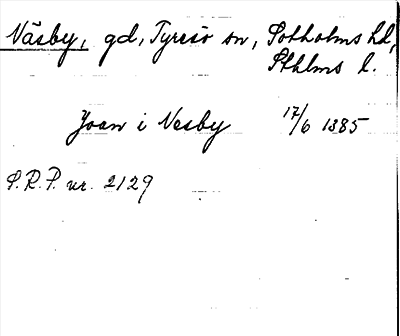 Näsby, gd, Tyresö sn, Sotholms hd,
Sthlms l.
Joan i Nesby 17/6 1385
S.R.P. nr. 2129